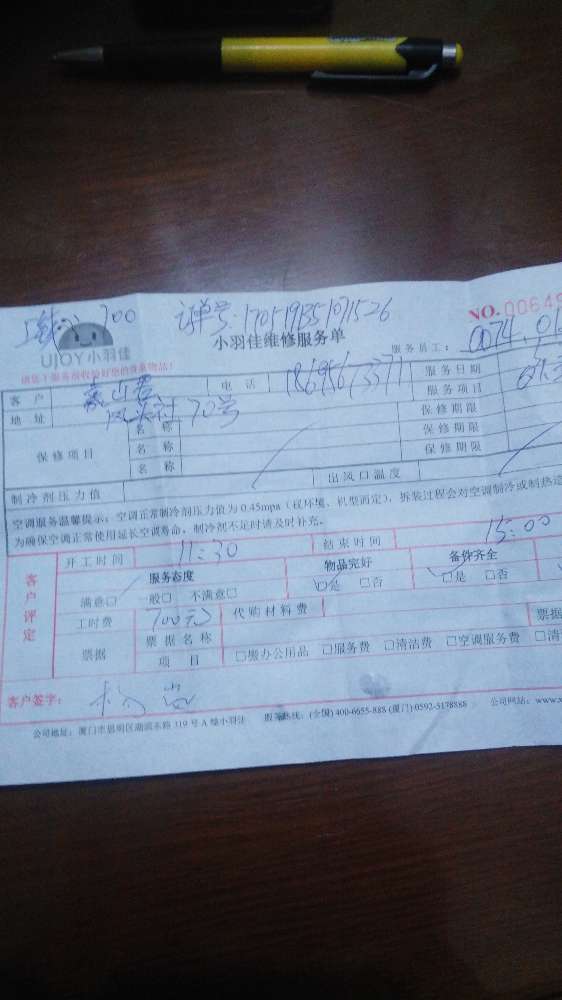 700 订单号:170519351071526
NO.00649
UJOY小羽佳
小羽佳维修服务单
服务员工: 0074.01
请您在服务前收验好您的贵重物品!
客户 电话 服务日期
地址 70号 服务项目
保修项目 名称 保修期限
名称 保修期限
名称 保修期限
制冷剂压力值 出风口温度
空调服务温馨提示:空调正常制冷剂压力值为0.45mpa(视环境、机型而定),拆装过程会对空调制冷或制热造
为确保空调正常使用延长空调寿命,制冷剂不足时请及时补充。
客户评定
开工时间 11:30 结束时间 15:00
服务态度 物品完好 备件齐全
满意□ 一般□ 不满意□ □是 □否 □是 □否
工时费 700元 代购材料费 票据
票据 票据名称
项目 □搬办公用品 □服务费 □清洁费 □空调服务费 □清
客户签字:
公司地址:厦门市思明区湖滨东路319号A幢小羽佳 服务热线:(全国)400-6655-888 (厦门)0592-5178888 公司网站:www.